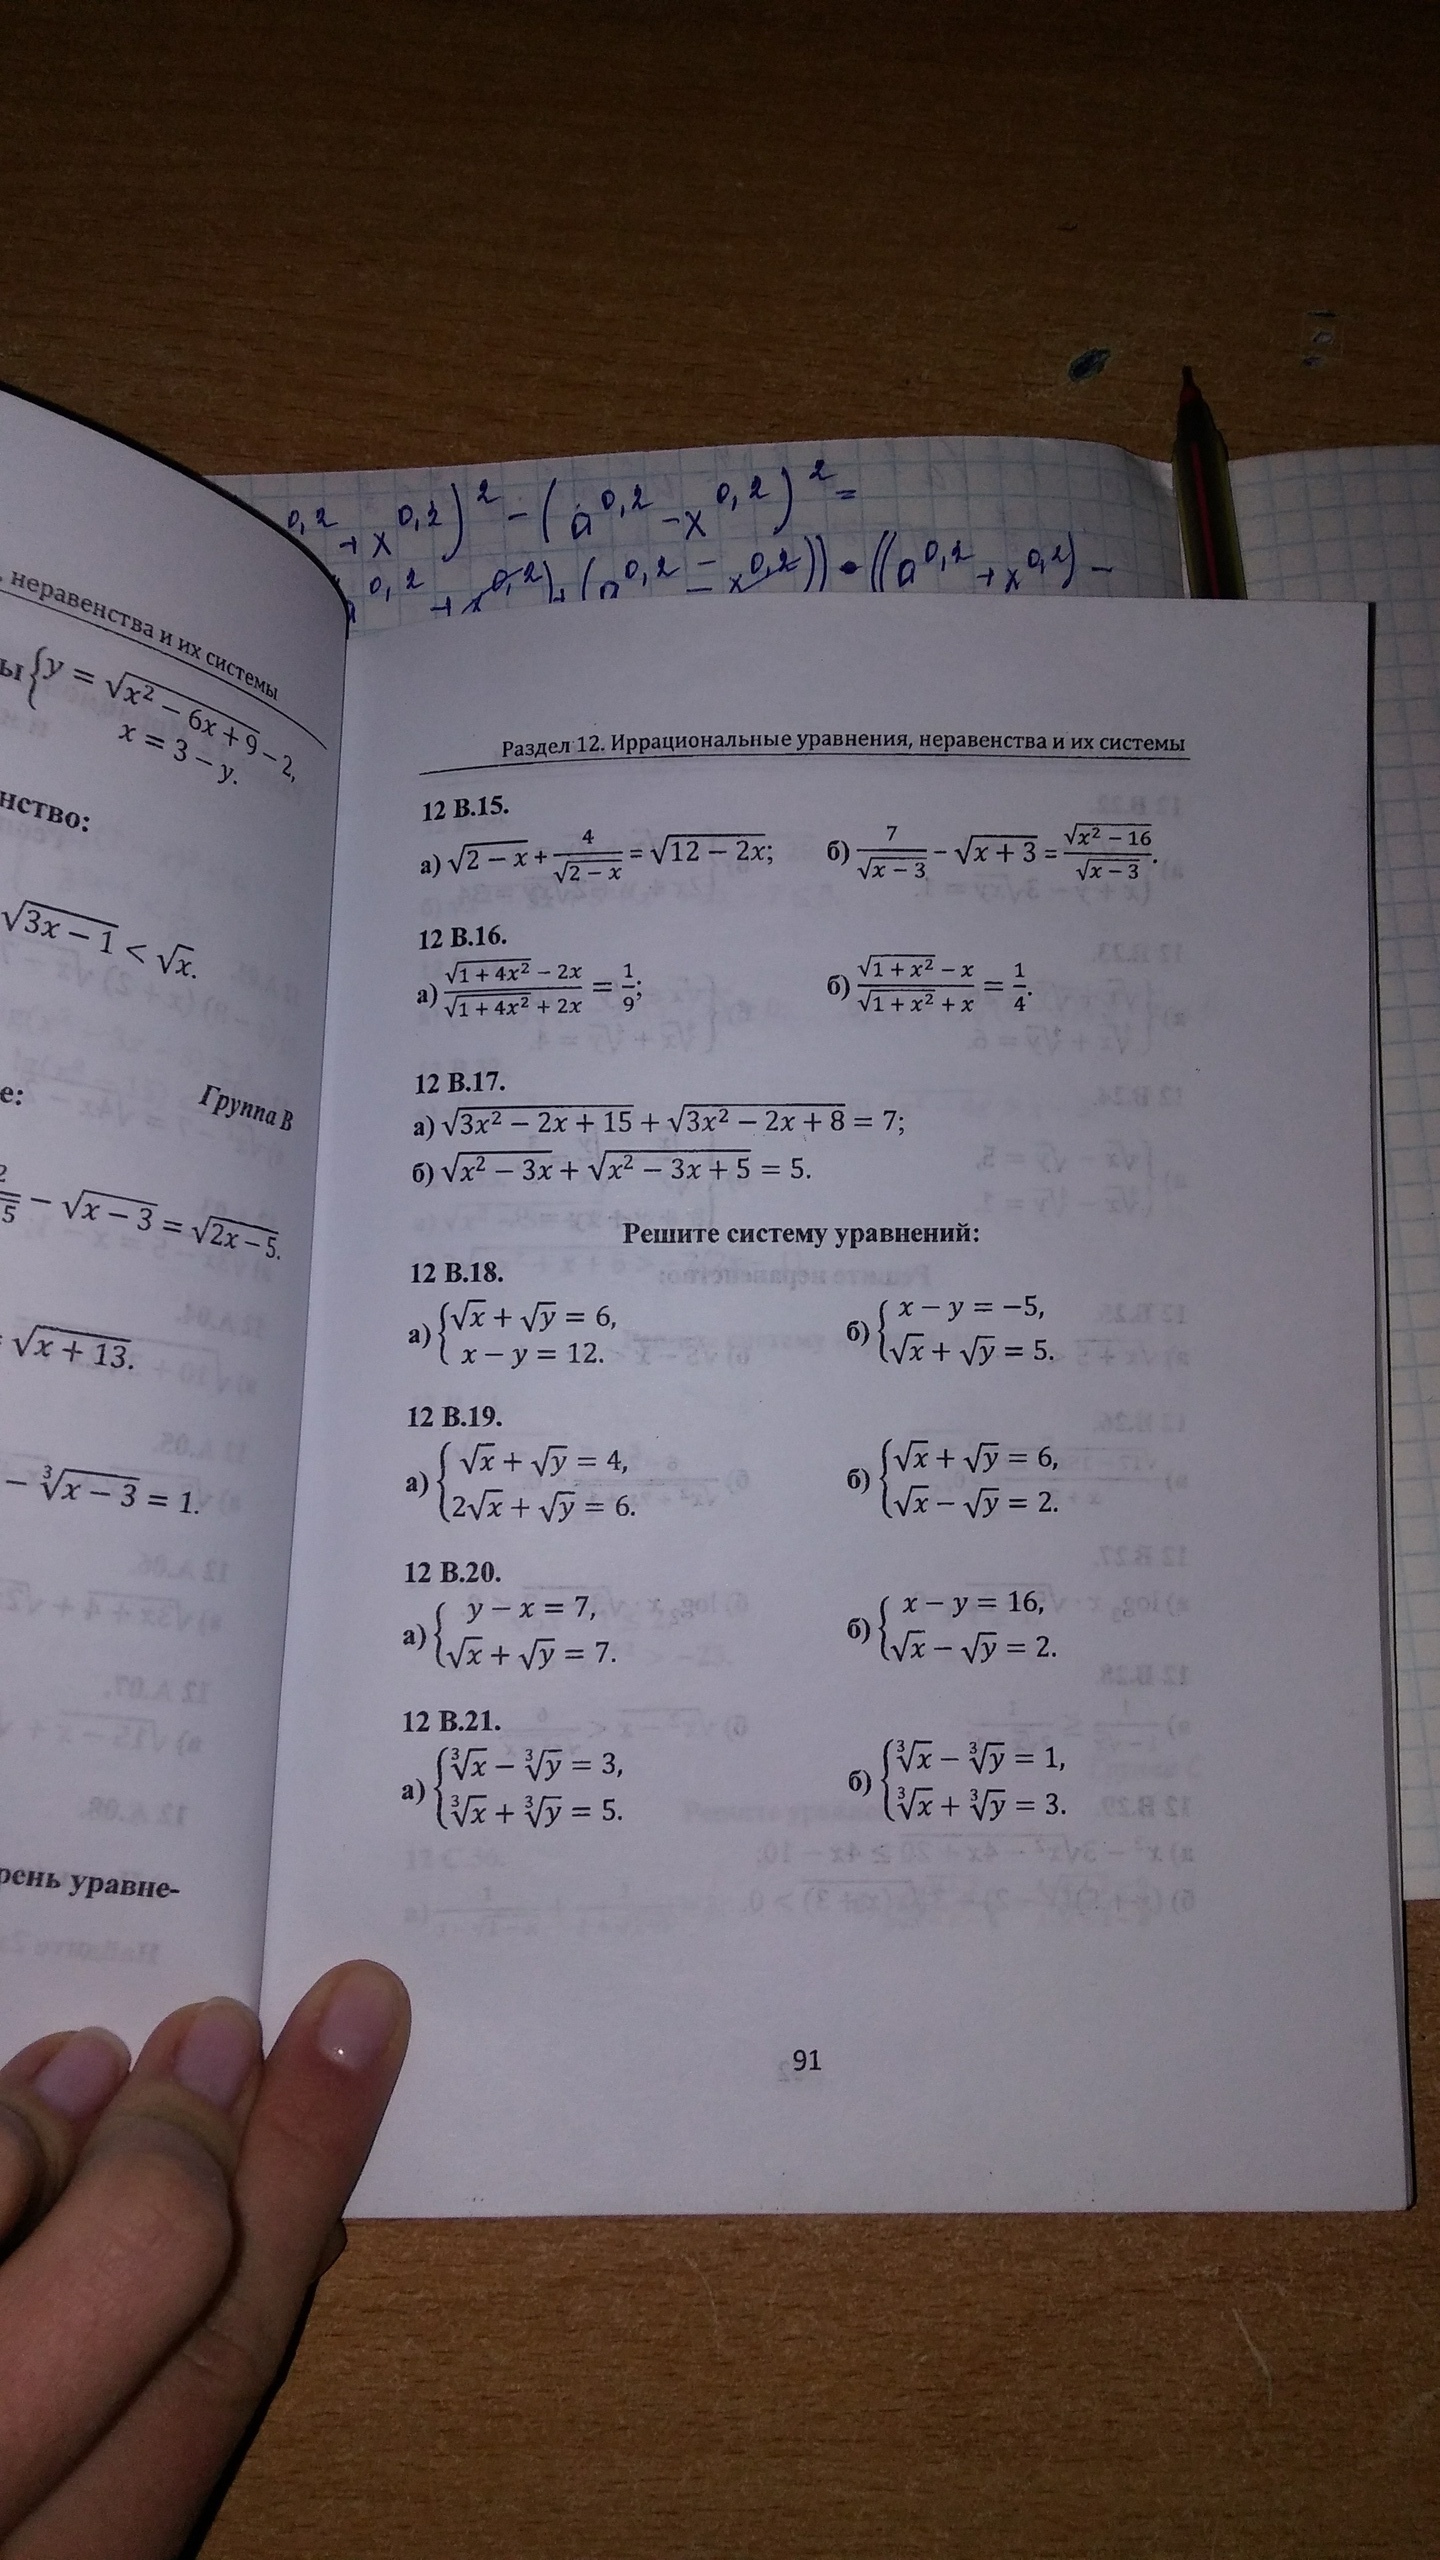 0,2 + x^0,2)^2 − (a^0,2 − x^0,2)^2 =
0,2 + x^0,2) + (a^0,2 − x^0,2)) • ((a^0,2 + x^0,2) −
, неравенства и их системы
ы {y = √(x² − 6x + 9) − 2,
x = 3 − y.
нство:
√(3x − 1) < √x.
е:
Группа В
5 − √(x − 3) = √(2x − 5).
√(x + 13).
− ∛(x − 3) = 1.
рень уравне-
Раздел 12. Иррациональные уравнения, неравенства и их системы
12 В.15.
а) √(2 − x) + 4/√(2 − x) = √(12 − 2x); б) 7/√(x − 3) − √(x + 3) = √(x² − 16)/√(x − 3).
12 В.16.
а) (√(1 + 4x²) − 2x)/(√(1 + 4x²) + 2x) = 1/9; б) (√(1 + x²) − x)/(√(1 + x²) + x) = 1/4.
12 В.17.
а) √(3x² − 2x + 15) + √(3x² − 2x + 8) = 7;
б) √(x² − 3x) + √(x² − 3x + 5) = 5.
Решите систему уравнений:
12 В.18.
а) {√x + √y = 6, б) {x − y = −5,
x − y = 12. √x + √y = 5.
12 В.19.
а) {√x + √y = 4, б) {√x + √y = 6,
2√x + √y = 6. √x − √y = 2.
12 В.20.
а) {y − x = 7, б) {x − y = 16,
√x + √y = 7. √x − √y = 2.
12 В.21.
а) {∛x − ∛y = 3, б) {∛x − ∛y = 1,
∛x + ∛y = 5. ∛x + ∛y = 3.
91